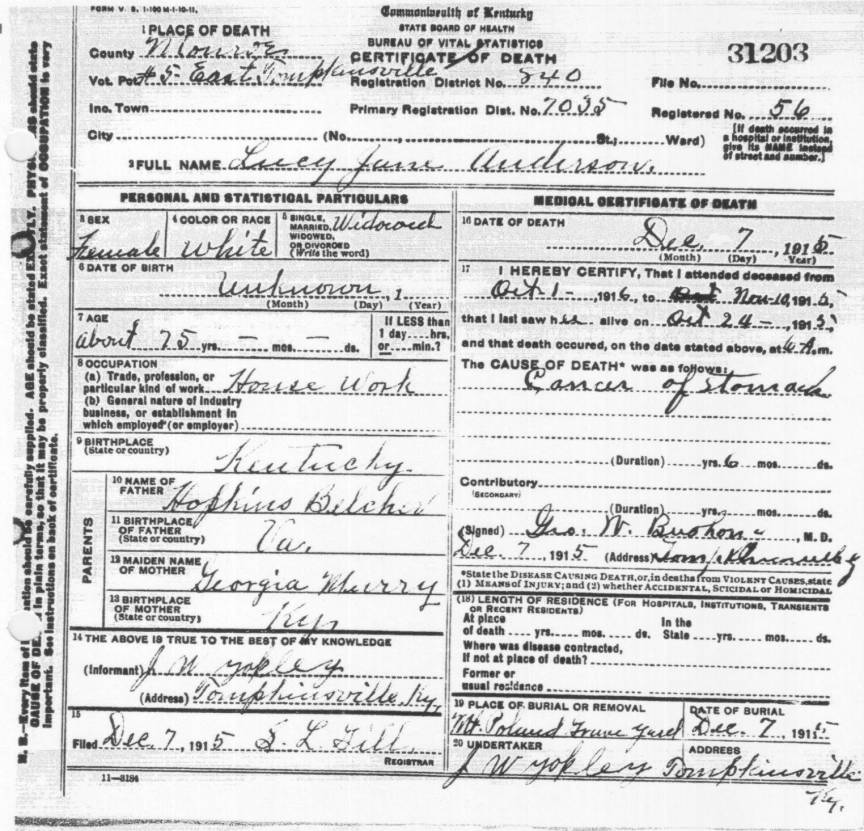 FORM V. S. 1-100 M-1-10-11.
Commonwealth of Kentucky
STATE BOARD OF HEALTH
BUREAU OF VITAL STATISTICS
CERTIFICATE OF DEATH
31203
1 PLACE OF DEATH
County Monroe
Vot. Pct # 5 East Tompkinsville
Registration District No. 840
File No.
Inc. Town
Primary Registration Dist. No. 7035
Registered No. 56
City (No. St.; Ward)
[If death occurred in a hospital or institution, give its NAME instead of street and number.]
2 FULL NAME Lucy Jane Anderson.
PERSONAL AND STATISTICAL PARTICULARS
3 SEX
Female
4 COLOR OR RACE
White
5 SINGLE, MARRIED, WIDOWED, OR DIVORCED (Write the word)
Widowed
6 DATE OF BIRTH
Unknown, 1
(Month) (Day) (Year)
7 AGE
about 75 yrs. — mos. — ds.
If LESS than 1 day hrs. or min.?
8 OCCUPATION
(a) Trade, profession, or particular kind of work House Work
(b) General nature of industry business, or establishment in which employed (or employer)
9 BIRTHPLACE
(State or country)
Kentucky.
PARENTS
10 NAME OF FATHER
Hopkins Belcher
11 BIRTHPLACE OF FATHER
(State or country)
Va.
12 MAIDEN NAME OF MOTHER
Georgia Murry
13 BIRTHPLACE OF MOTHER
(State or country)
Ky.
14 THE ABOVE IS TRUE TO THE BEST OF MY KNOWLEDGE
(Informant) J W Yokley
(Address) Tompkinsville, Ky.
15
Filed Dec. 7, 1915 L Gill
REGISTRAR
11—3184
MEDICAL CERTIFICATE OF DEATH
16 DATE OF DEATH
Dec. 7, 1915
(Month) (Day) (Year)
17 I HEREBY CERTIFY, That I attended deceased from
Oct 1 - 1916, to Nov-10, 1915,
that I last saw her alive on Oct 24 -, 1915,
and that death occured, on the date stated above, at 6 A.m.
The CAUSE OF DEATH* was as follows:
Cancer of Stomach
(Duration) yrs. 6 mos. ds.
Contributory
(SECONDARY)
(Duration) yrs. mos. ds.
(Signed) Geo. W. Bushong, M. D.
Dec 7 1915 (Address)
*State the DISEASE CAUSING DEATH, or, in deaths from VIOLENT CAUSES, state
(1) MEANS OF INJURY; and (2) whether ACCIDENTAL, SUICIDAL or HOMICIDAL
(18) LENGTH OF RESIDENCE (FOR HOSPITALS, INSTITUTIONS, TRANSIENTS OR RECENT RESIDENTS)
At place of death yrs. mos. ds. In the State yrs. mos. ds.
Where was disease contracted, If not at place of death?
Former or usual residence
19 PLACE OF BURIAL OR REMOVAL
Mt. Poland Grave yard
DATE OF BURIAL
Dec. 7, 1915
20 UNDERTAKER
J W Yokley
ADDRESS
Tompkinsville
Ky.